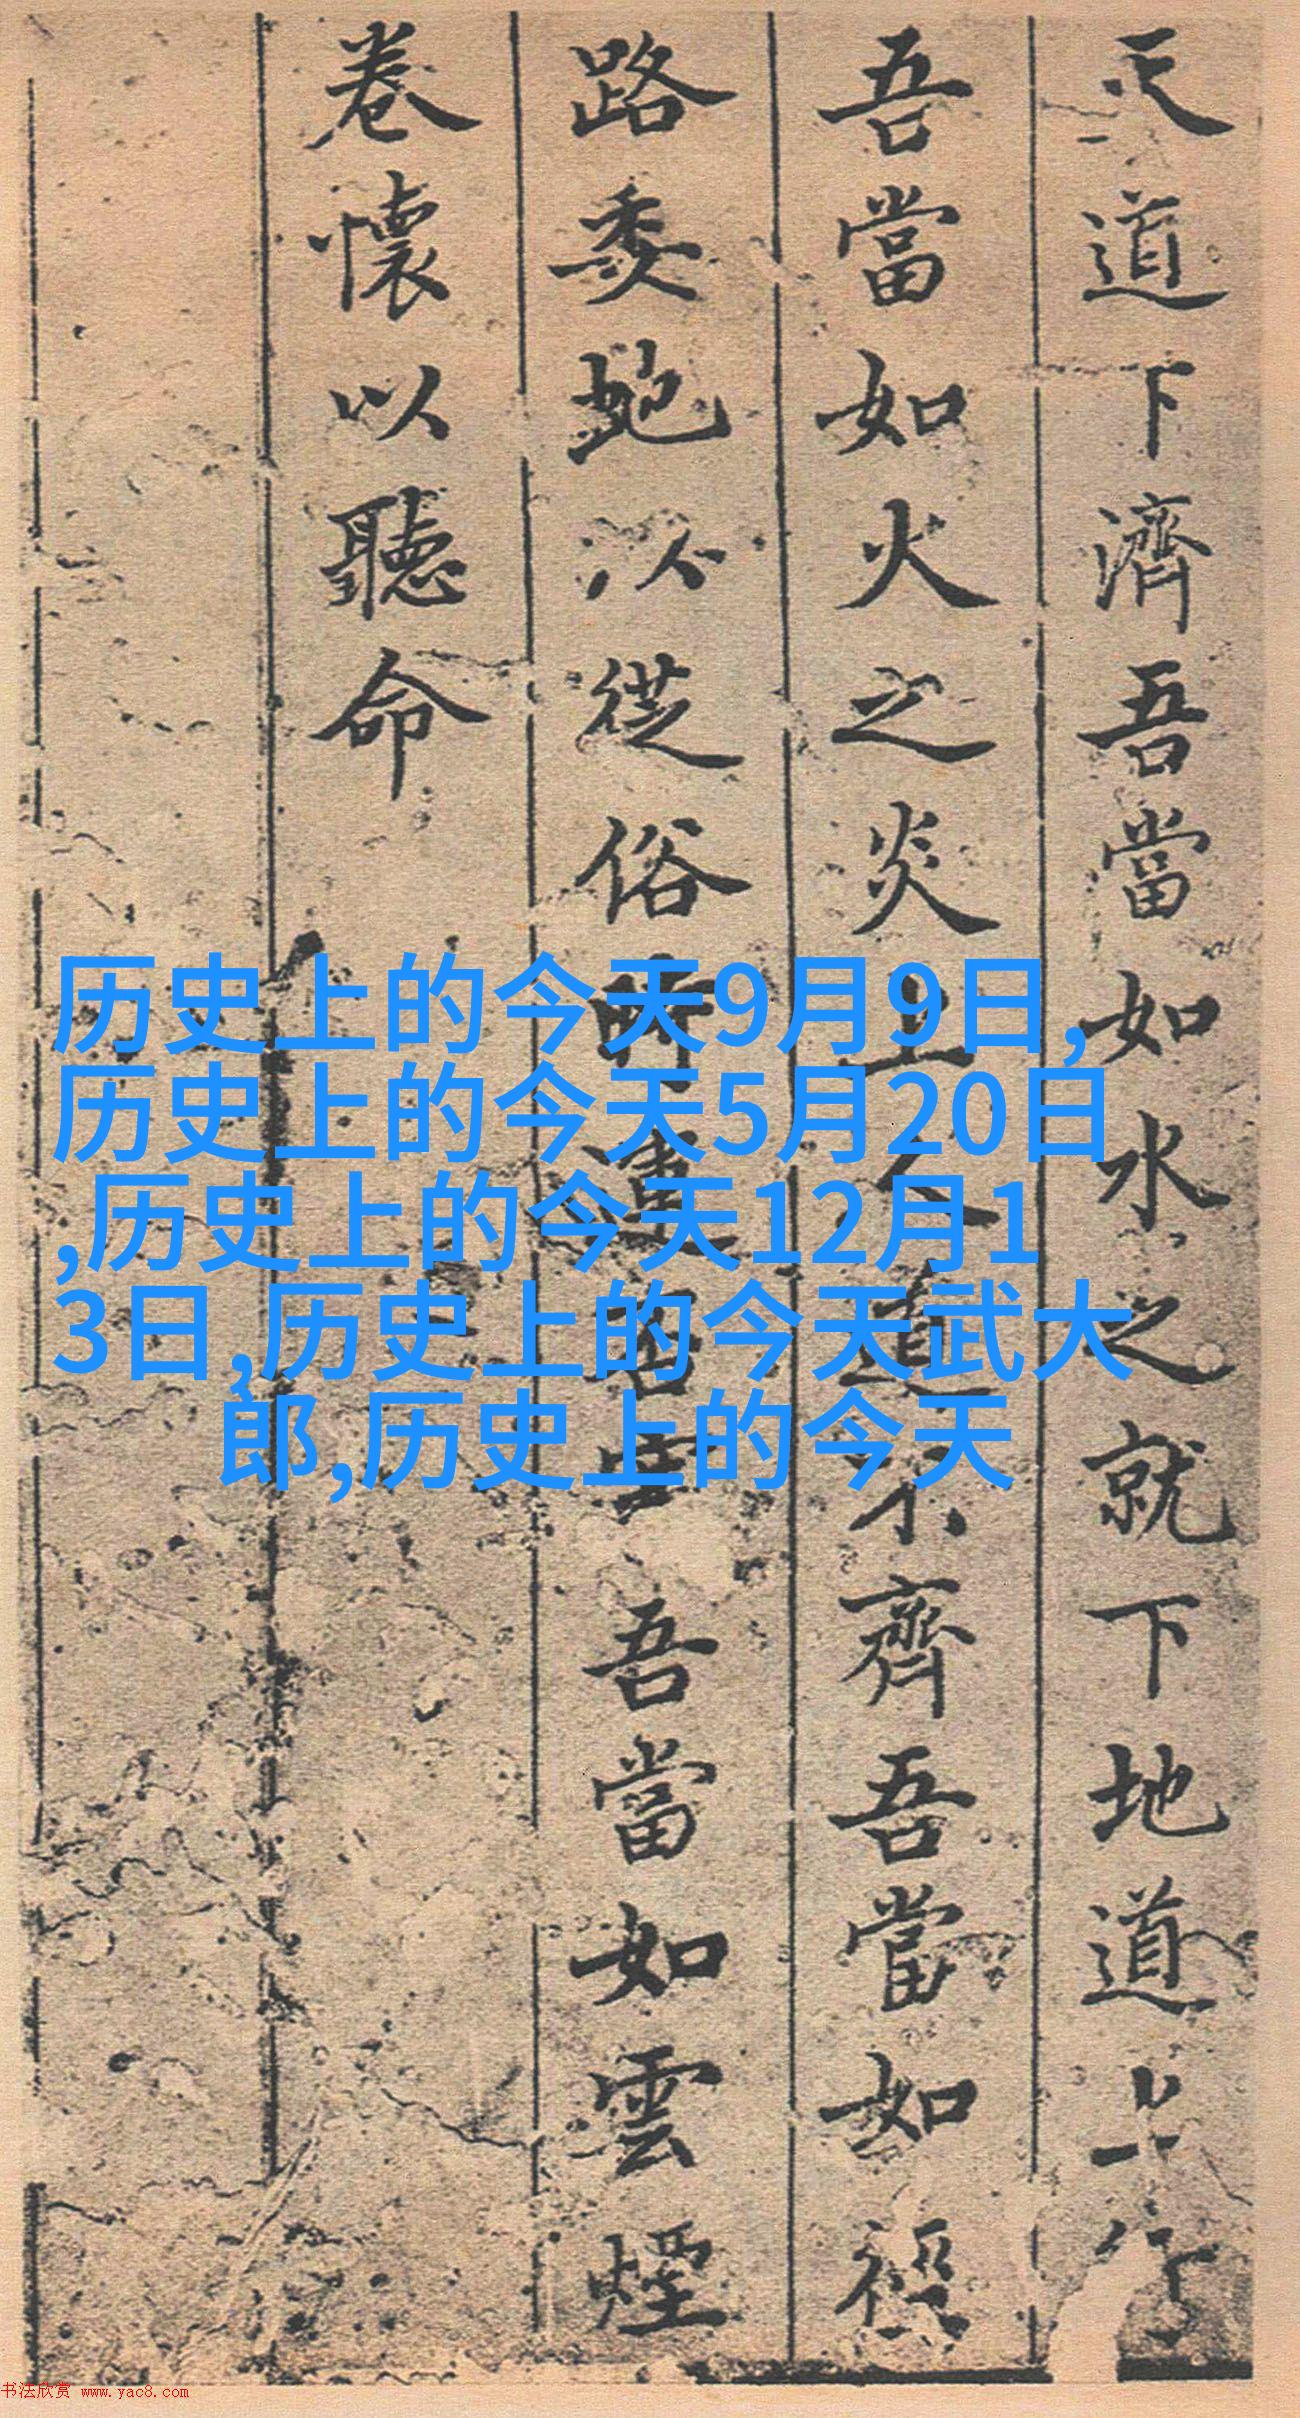 天道下濟吾當如水之就下地道上行
吾當如火之炎上人道不齊吾當如徑
路委蛇以從俗時運吾當如雲煙
卷懷以聽命
历史上的今天9月9日,
历史上的今天5月20日
,历史上的今天12月1
3日,历史上的今天武大
郎,历史上的今天
书法欣赏 www.yac8.com